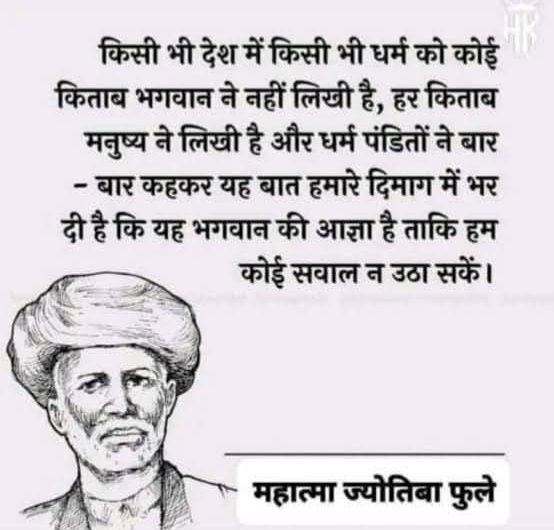 HK
किसी भी देश में किसी भी धर्म को कोई
किताब भगवान ने नहीं लिखी है, हर किताब
मनुष्य ने लिखी है और धर्म पंडितों ने बार
- बार कहकर यह बात हमारे दिमाग में भर
दी है कि यह भगवान की आज्ञा है ताकि हम
कोई सवाल न उठा सकें।
महात्मा ज्योतिबा फुले